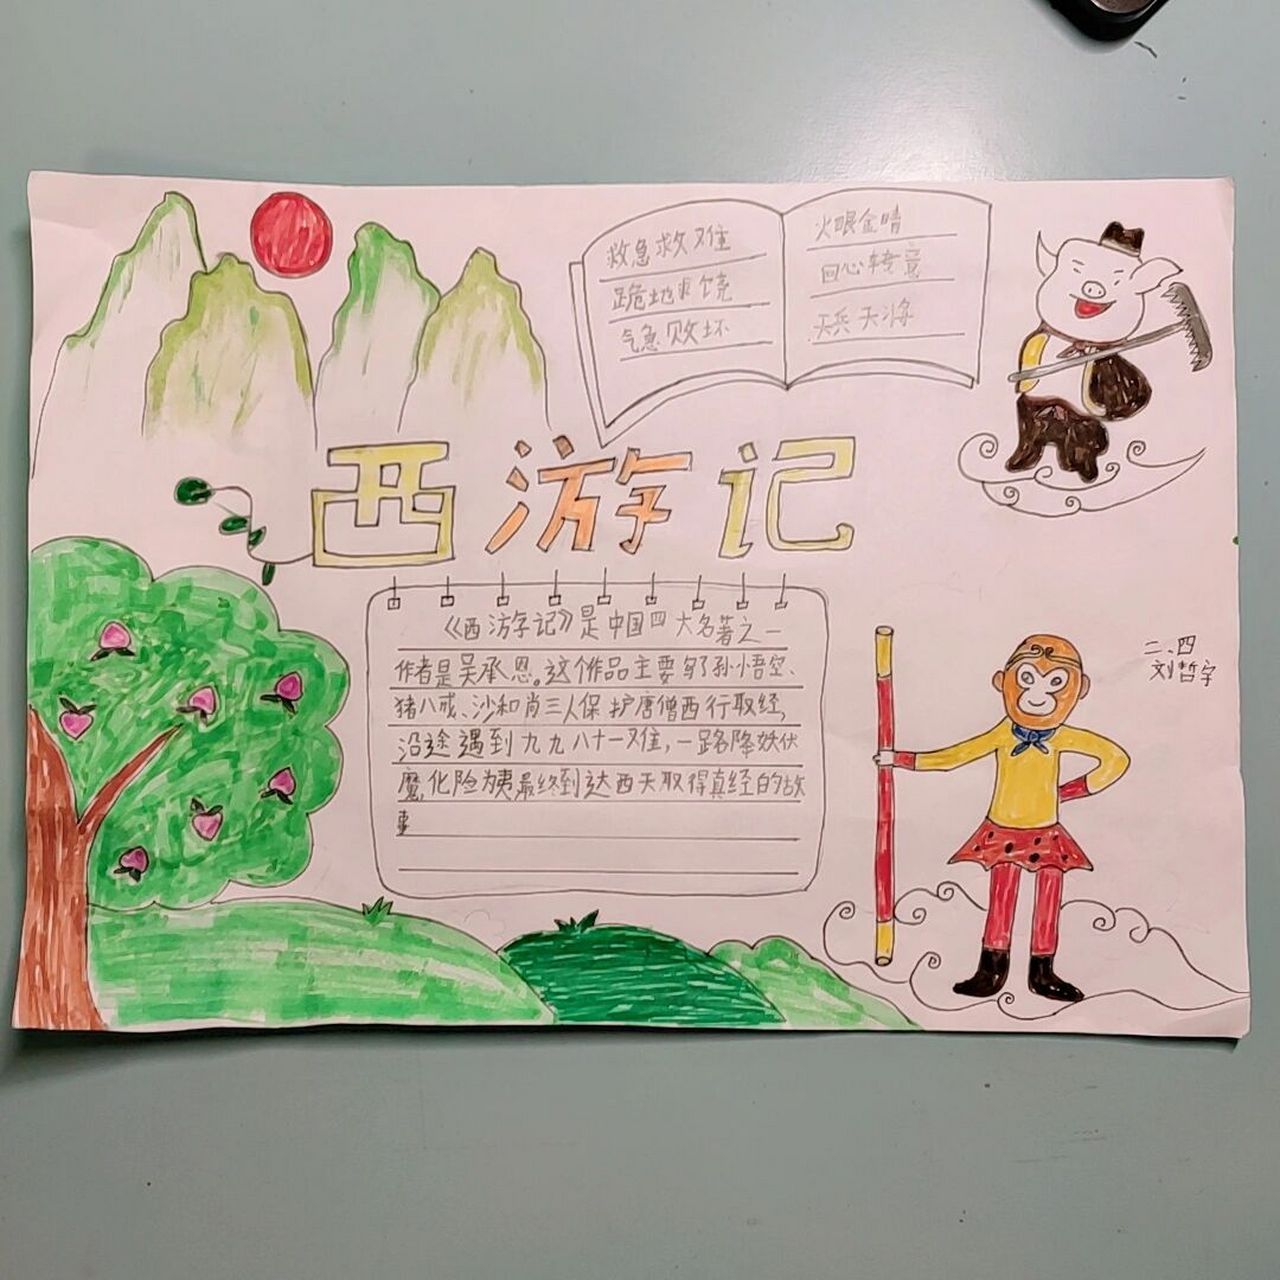 救急救难
跪地求饶
气急败坏
火眼金晴
回心转意
天兵天将
西游记
《西游记》是中国四大名著之一
作者是吴承恩。这个作品主要写了孙悟空、
猪八戒、沙和尚三人保护唐僧西行取经,
沿途遇到九九八十一难,一路降妖伏
魔,化险为夷最终到达西天取得真经的故
事
二、四
刘哲宇